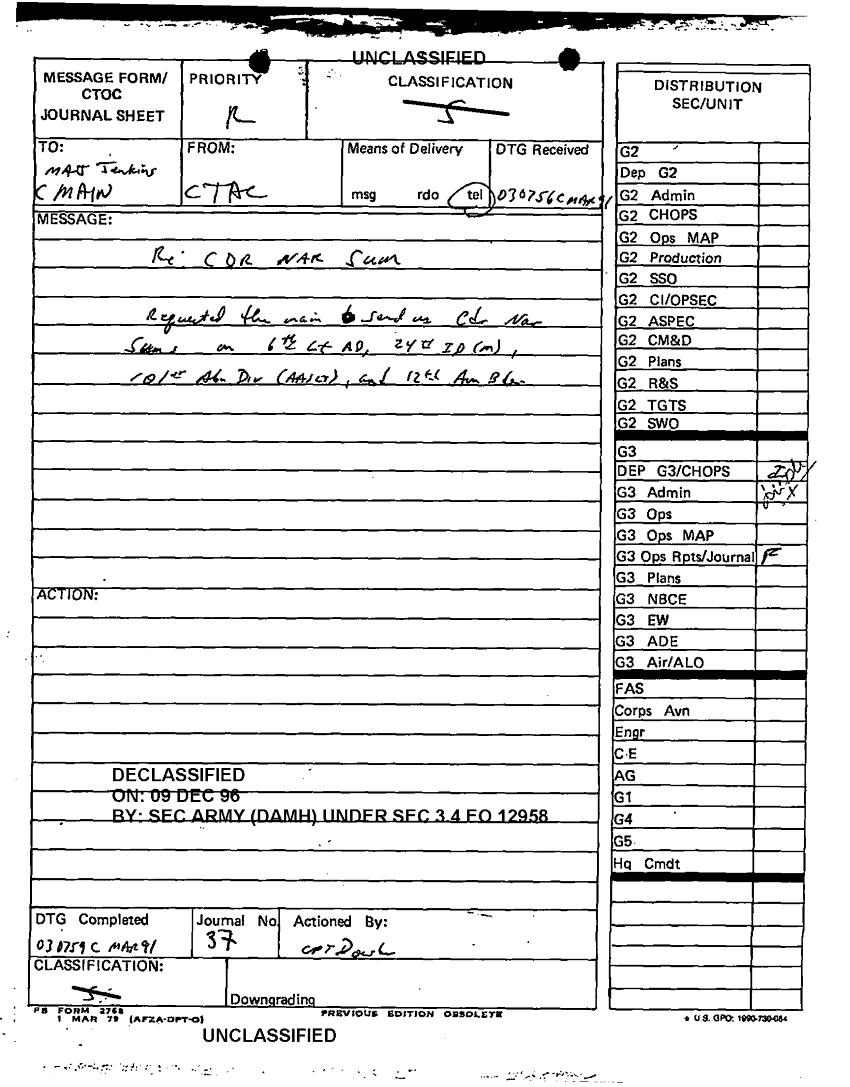 UNCLASSIFIED
MESSAGE FORM/
CTOC
JOURNAL SHEET
PRIORITY
R
CLASSIFICATION
S
TO:
MAJ Jenkins
C MAIN
FROM:
CTAC
Means of Delivery
msg rdo tel
DTG Received
030756C MAR91
MESSAGE:
Re: CDR NAR Sum
Requested the main to send us Cdr Nar
Sums on 6th Lt AD, 24th ID (m),
101st Abn Div (AASLT), and 12th Avn Bde.
ACTION:
DECLASSIFIED
ON: 09 DEC 96
BY: SEC ARMY (DAMH) UNDER SEC 3.4 EO 12958
DTG Completed
030759C MAR91
Journal No.
37
Actioned By:
CPT
CLASSIFICATION:
S
Downgrading
FB FORM 2768
1 MAR 79 (AFZA-DPT-O)
PREVIOUS EDITION OBSOLETE
UNCLASSIFIED
DISTRIBUTION
SEC/UNIT
G2
Dep G2
G2 Admin
G2 CHOPS
G2 Ops MAP
G2 Production
G2 SSO
G2 CI/OPSEC
G2 ASPEC
G2 CM&D
G2 Plans
G2 R&S
G2 TGTS
G2 SWO
G3
DEP G3/CHOPS
G3 Admin
G3 Ops
G3 Ops MAP
G3 Ops Rpts/Journal F
G3 Plans
G3 NBCE
G3 EW
G3 ADE
G3 Air/ALO
FAS
Corps Avn
Engr
C-E
AG
G1
G4
G5
Hq Cmdt
* U.S. GPO: 1990-730-084